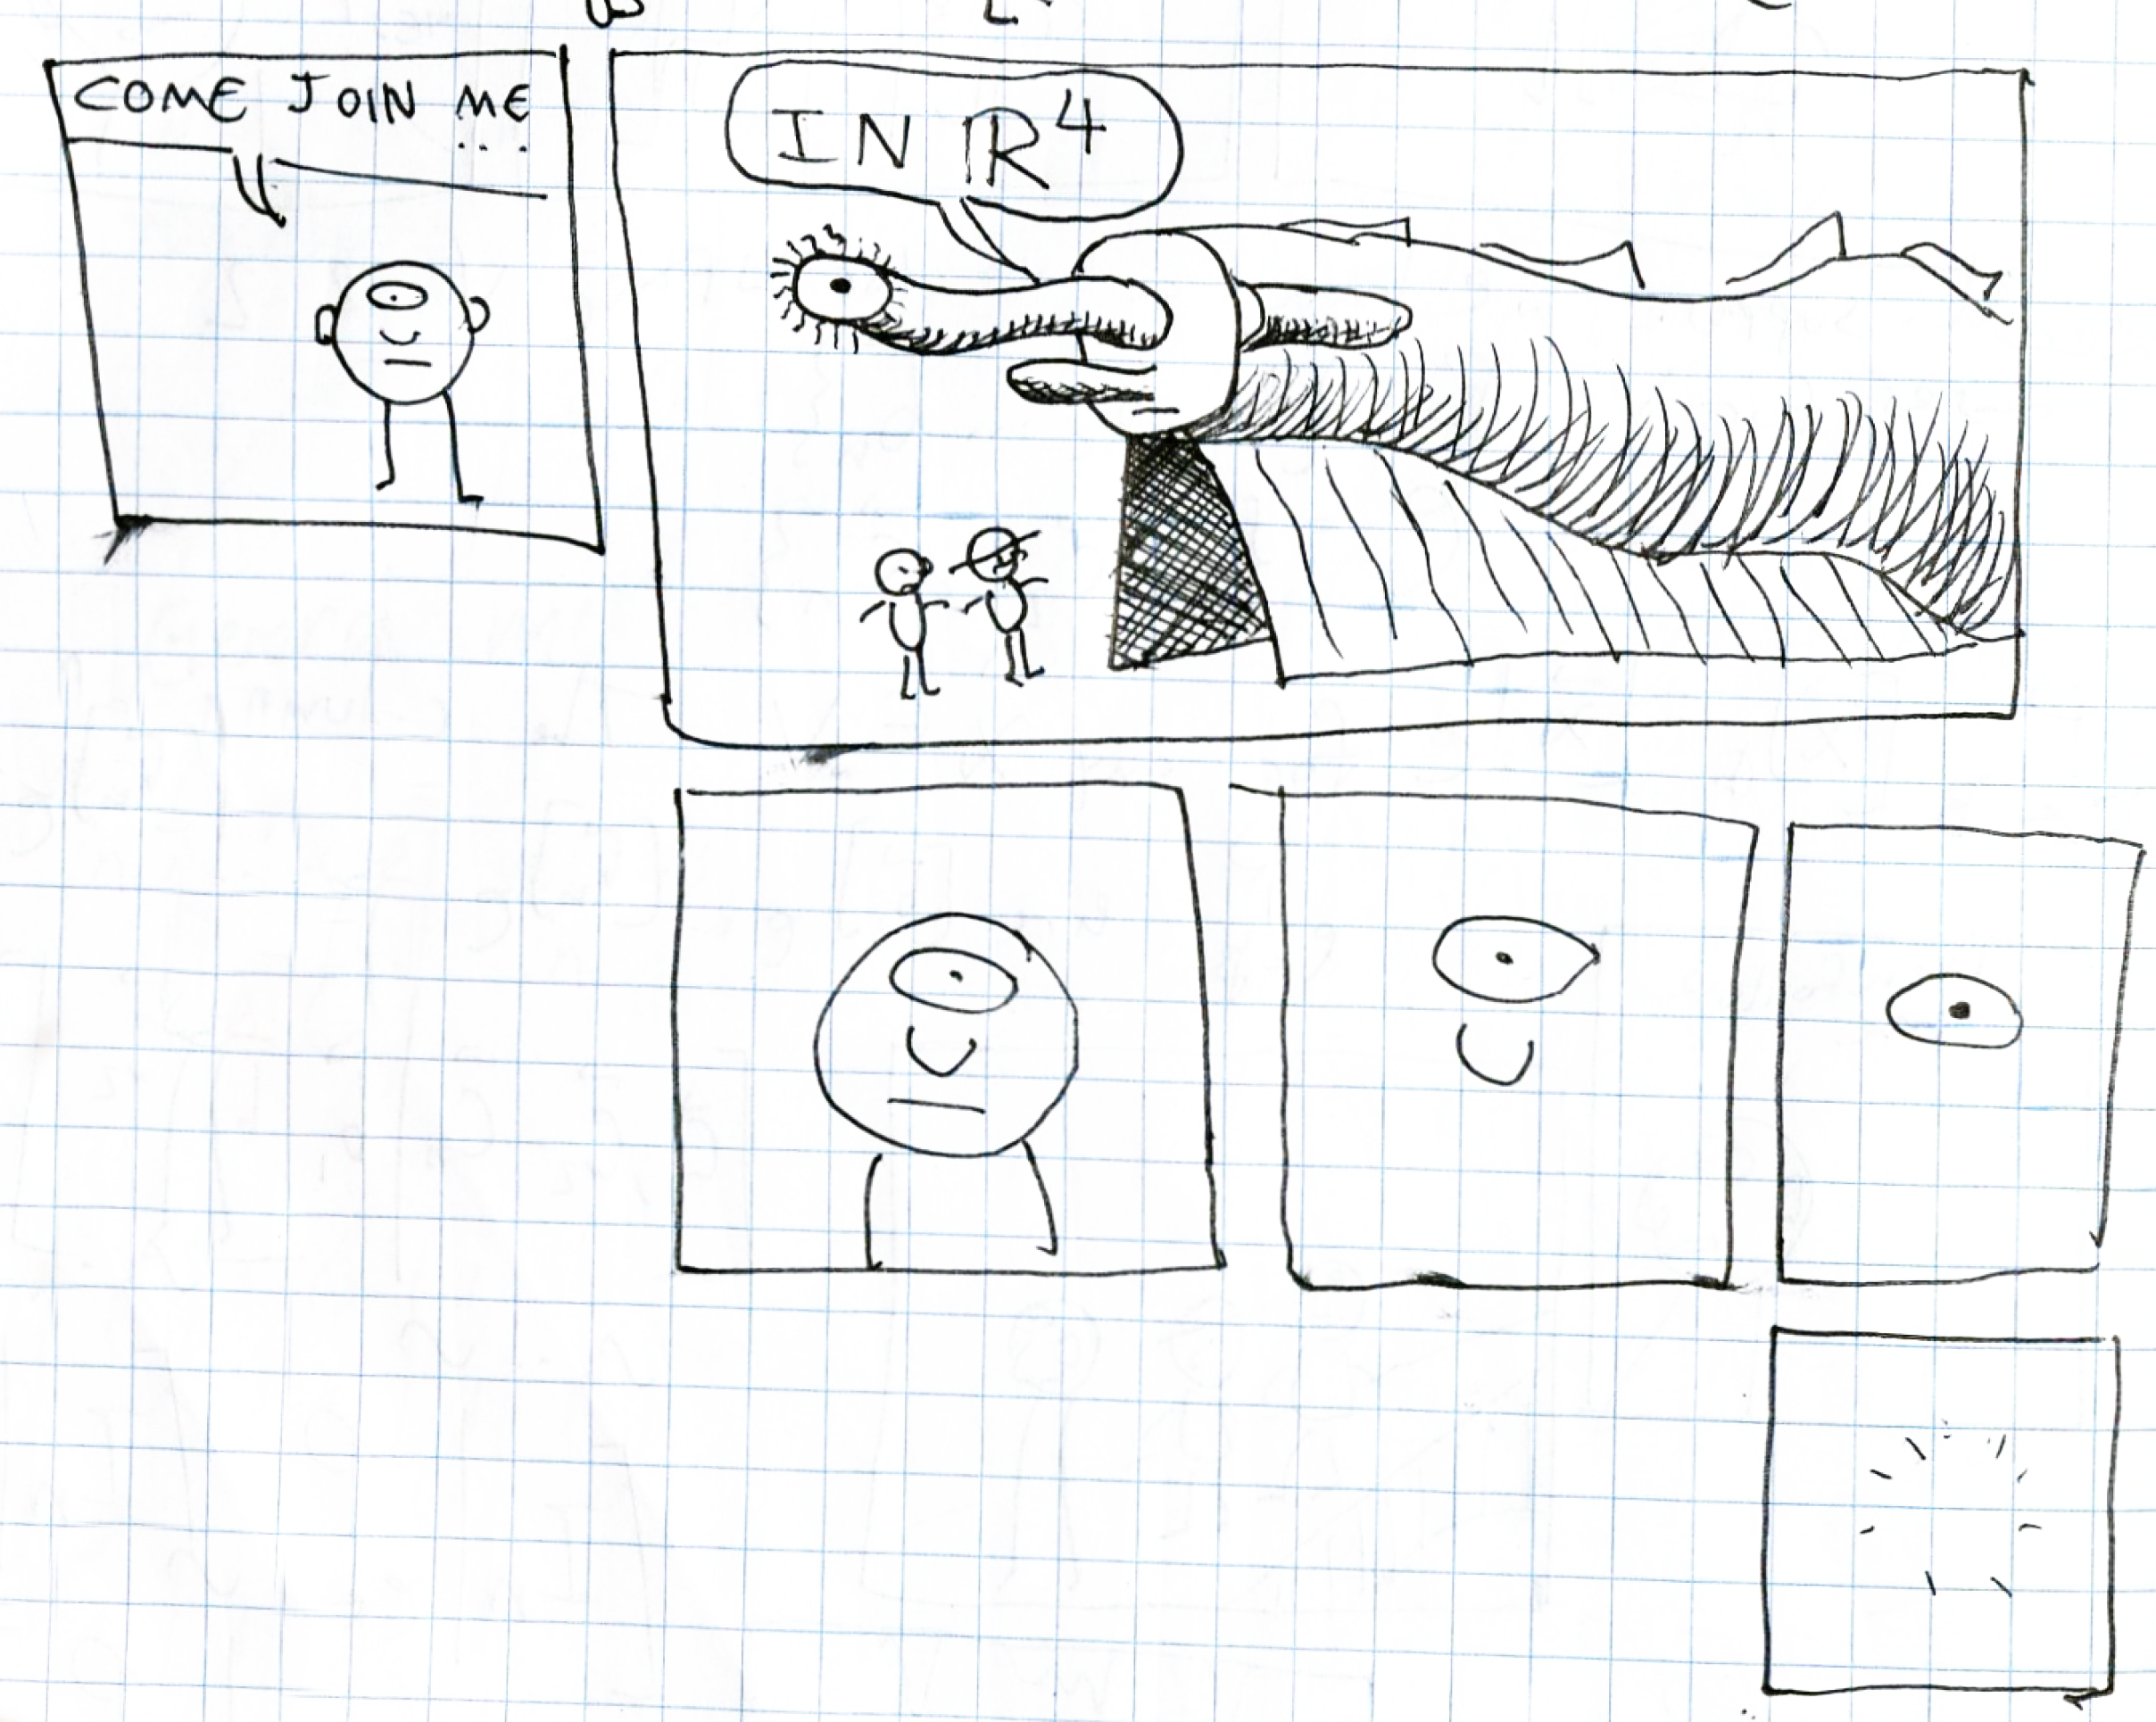 COME JOIN ME
...
IN ℝ⁴